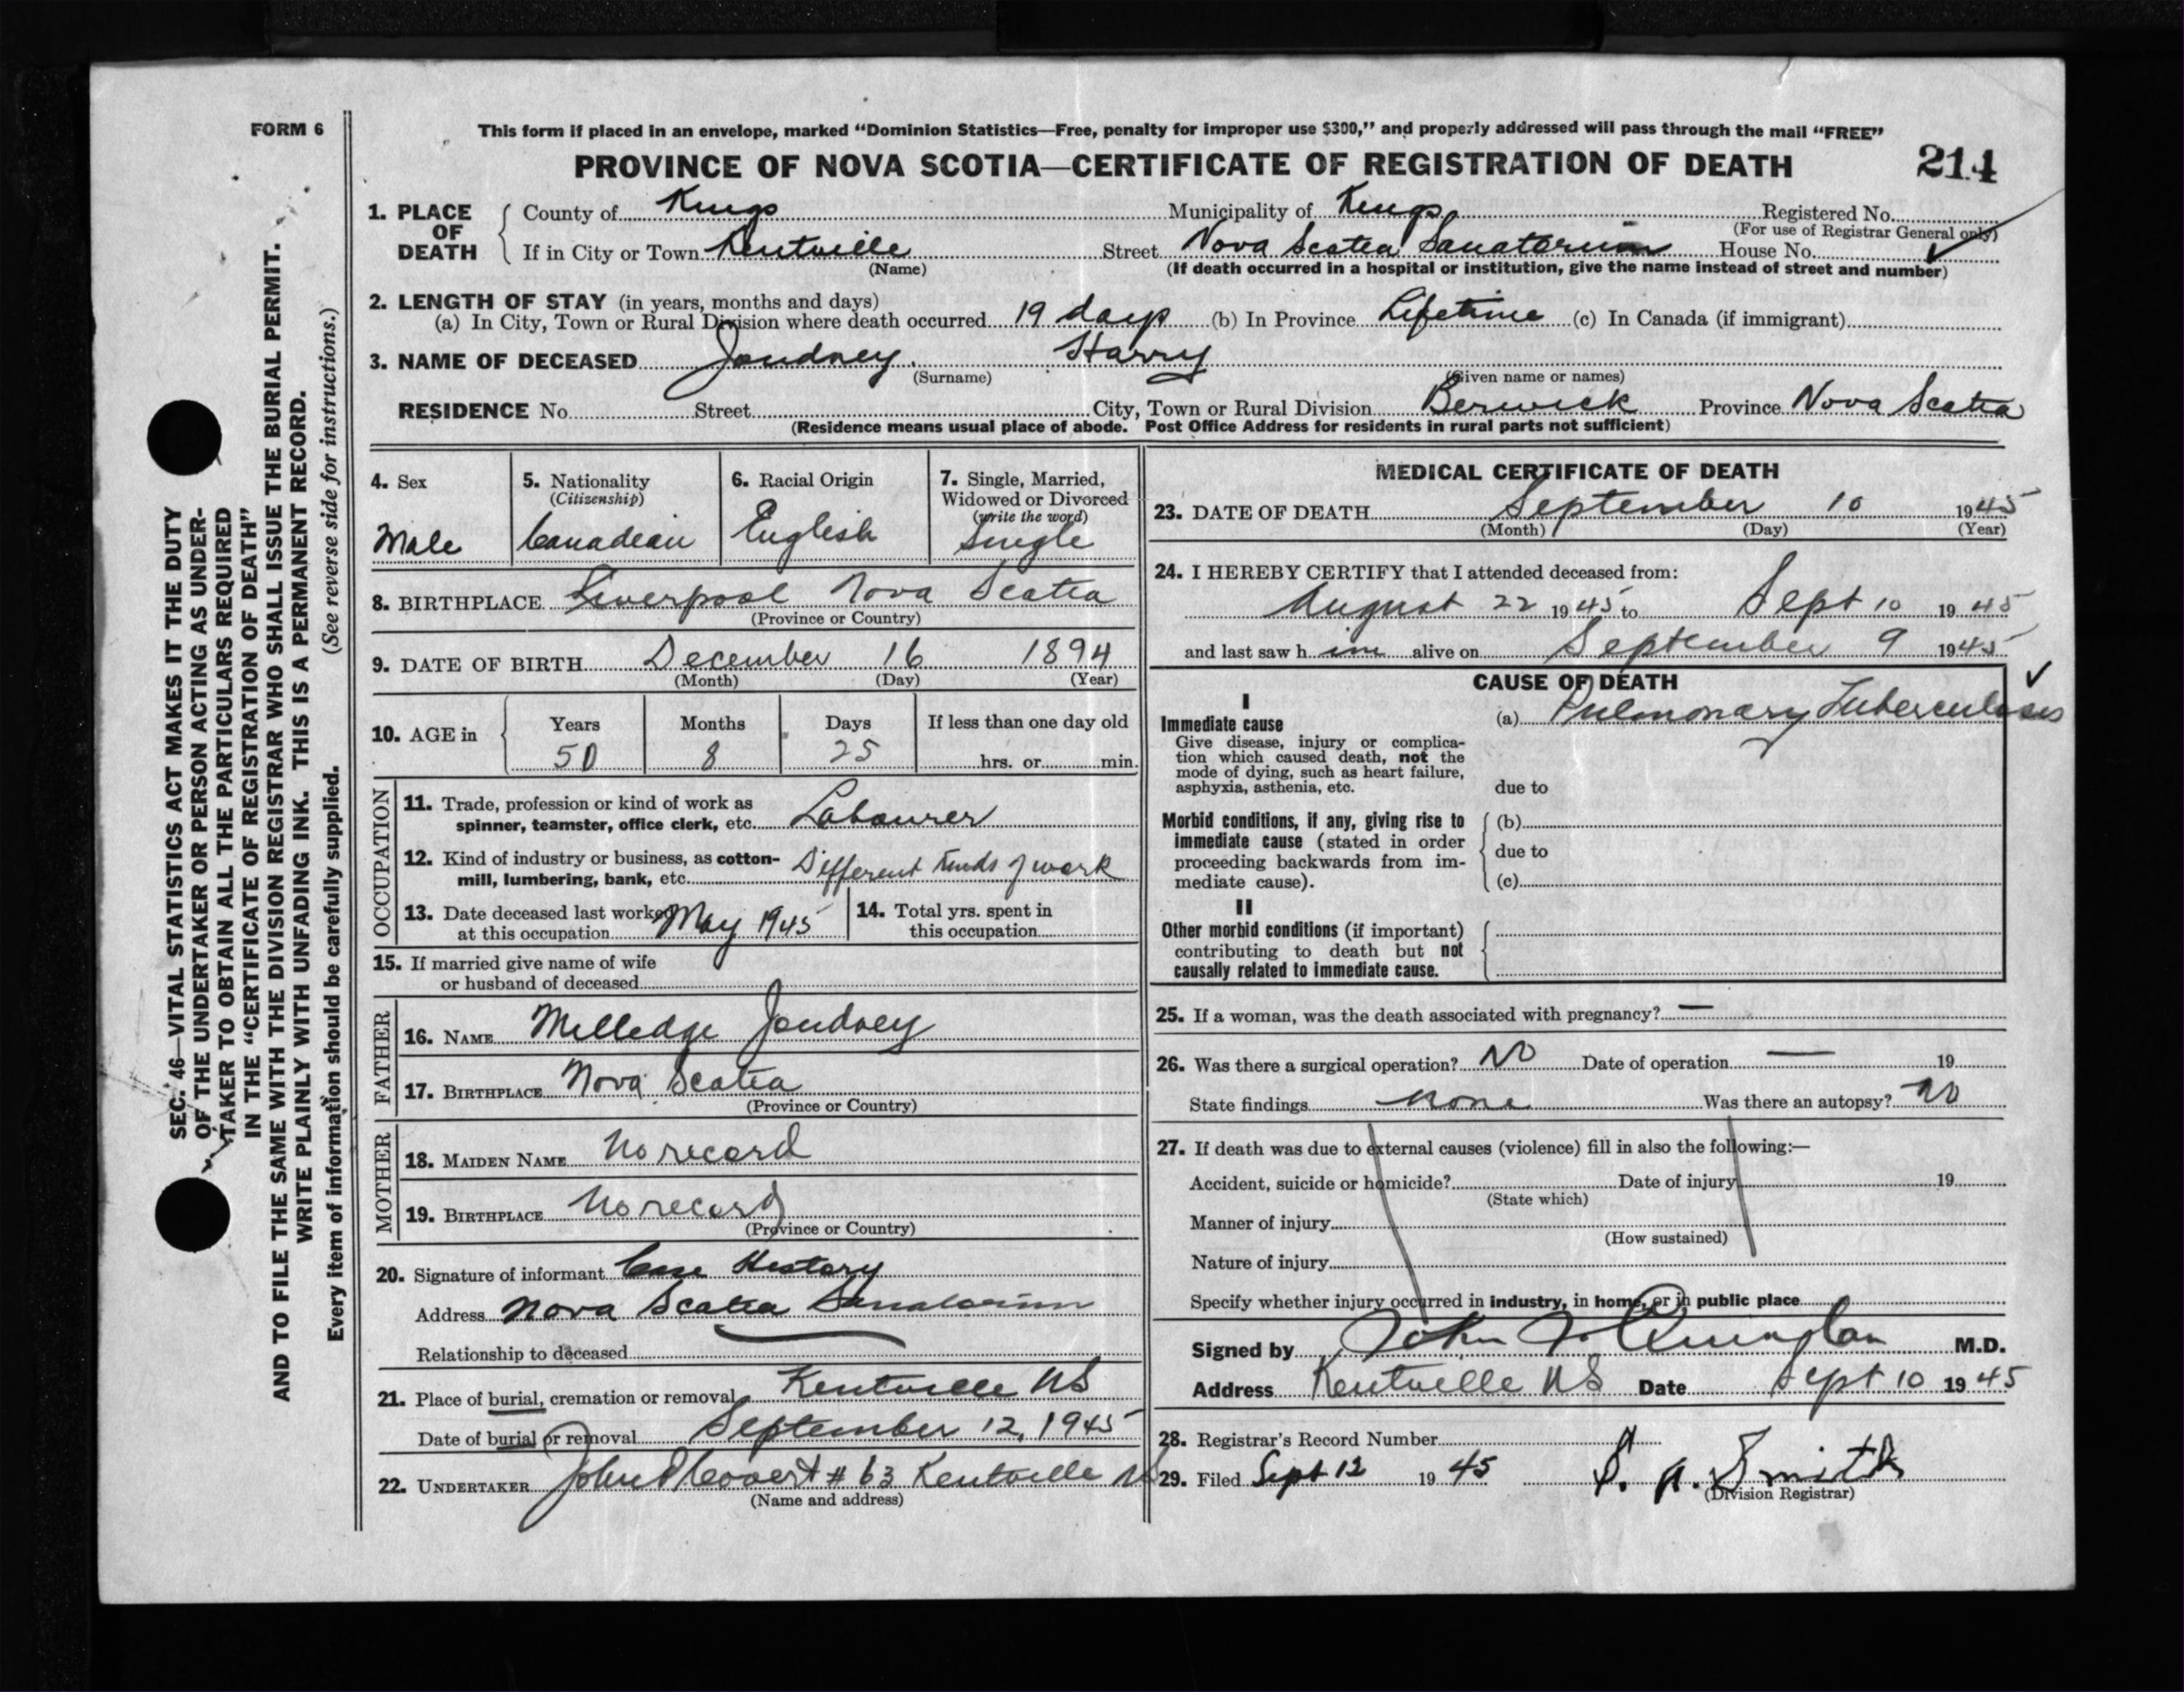 FORM 6
This form if placed in an envelope, marked “Dominion Statistics—Free, penalty for improper use $300,” and properly addressed will pass through the mail “FREE”
PROVINCE OF NOVA SCOTIA—CERTIFICATE OF REGISTRATION OF DEATH
214
1. PLACE OF DEATH County of Kings Municipality of Kings Registered No.
(For use of Registrar General only)
If in City or Town Kentville Street Nova Scotia Sanatorium House No.
(Name) (If death occurred in a hospital or institution, give the name instead of street and number)
2. LENGTH OF STAY (in years, months and days)
(a) In City, Town or Rural Division where death occurred 19 days (b) In Province Lifetime (c) In Canada (if immigrant)
3. NAME OF DECEASED Joudrey, Harry
(Surname) (Given name or names)
RESIDENCE No. Street City, Town or Rural Division Berwick Province Nova Scotia
(Residence means usual place of abode. Post Office Address for residents in rural parts not sufficient)
4. Sex
Male
5. Nationality
(Citizenship)
Canadian
6. Racial Origin
English
7. Single, Married,
Widowed or Divorced
(write the word)
Single
8. BIRTHPLACE Liverpool Nova Scotia
(Province or Country)
9. DATE OF BIRTH December 16 1894
(Month) (Day) (Year)
10. AGE in Years Months Days If less than one day old
50 8 25 hrs. or min.
OCCUPATION
11. Trade, profession or kind of work as
spinner, teamster, office clerk, etc. Labourer
12. Kind of industry or business, as cotton-
mill, lumbering, bank, etc. Different kinds of work
13. Date deceased last worked
at this occupation May 1945
14. Total yrs. spent in
this occupation
15. If married give name of wife
or husband of deceased
FATHER
16. NAME Milledge Joudrey
17. BIRTHPLACE Nova Scotia
(Province or Country)
MOTHER
18. MAIDEN NAME No record
19. BIRTHPLACE No record
(Province or Country)
20. Signature of informant Case History
Address Nova Scotia Sanatorium
Relationship to deceased
21. Place of burial, cremation or removal Kentville NS
Date of burial or removal September 12, 1945
22. UNDERTAKER John P Covert # 63 Kentville NS
(Name and address)
MEDICAL CERTIFICATE OF DEATH
23. DATE OF DEATH September 10 1945
(Month) (Day) (Year)
24. I HEREBY CERTIFY that I attended deceased from:
August 22 1945 to Sept 10 1945
and last saw him alive on September 9 1945
CAUSE OF DEATH
I
Immediate cause (a) Pulmonary Tuberculosis
Give disease, injury or complica-
tion which caused death, not the
mode of dying, such as heart failure,
asphyxia, asthenia, etc. due to
Morbid conditions, if any, giving rise to (b)
immediate cause (stated in order
proceeding backwards from im- due to
mediate cause). (c)
II
Other morbid conditions (if important)
contributing to death but not
causally related to immediate cause.
25. If a woman, was the death associated with pregnancy? —
26. Was there a surgical operation? No Date of operation — 19
State findings none Was there an autopsy? No
27. If death was due to external causes (violence) fill in also the following:—
Accident, suicide or homicide? Date of injury 19
(State which)
Manner of injury
(How sustained)
Nature of injury
Specify whether injury occurred in industry, in home, or in public place
Signed by John J. Quinlan M.D.
Address Kentville NS Date Sept 10 1945
28. Registrar's Record Number
29. Filed Sept 12 1945 S. A. Smith
(Division Registrar)
SEC. 46—VITAL STATISTICS ACT MAKES IT THE DUTY
OF THE UNDERTAKER OR PERSON ACTING AS UNDER-
TAKER TO OBTAIN ALL THE PARTICULARS REQUIRED
IN THE “CERTIFICATE OF REGISTRATION OF DEATH”
AND TO FILE THE SAME WITH THE DIVISION REGISTRAR WHO SHALL ISSUE THE BURIAL PERMIT.
WRITE PLAINLY WITH UNFADING INK. THIS IS A PERMANENT RECORD.
Every item of information should be carefully supplied. (See reverse side for instructions.)